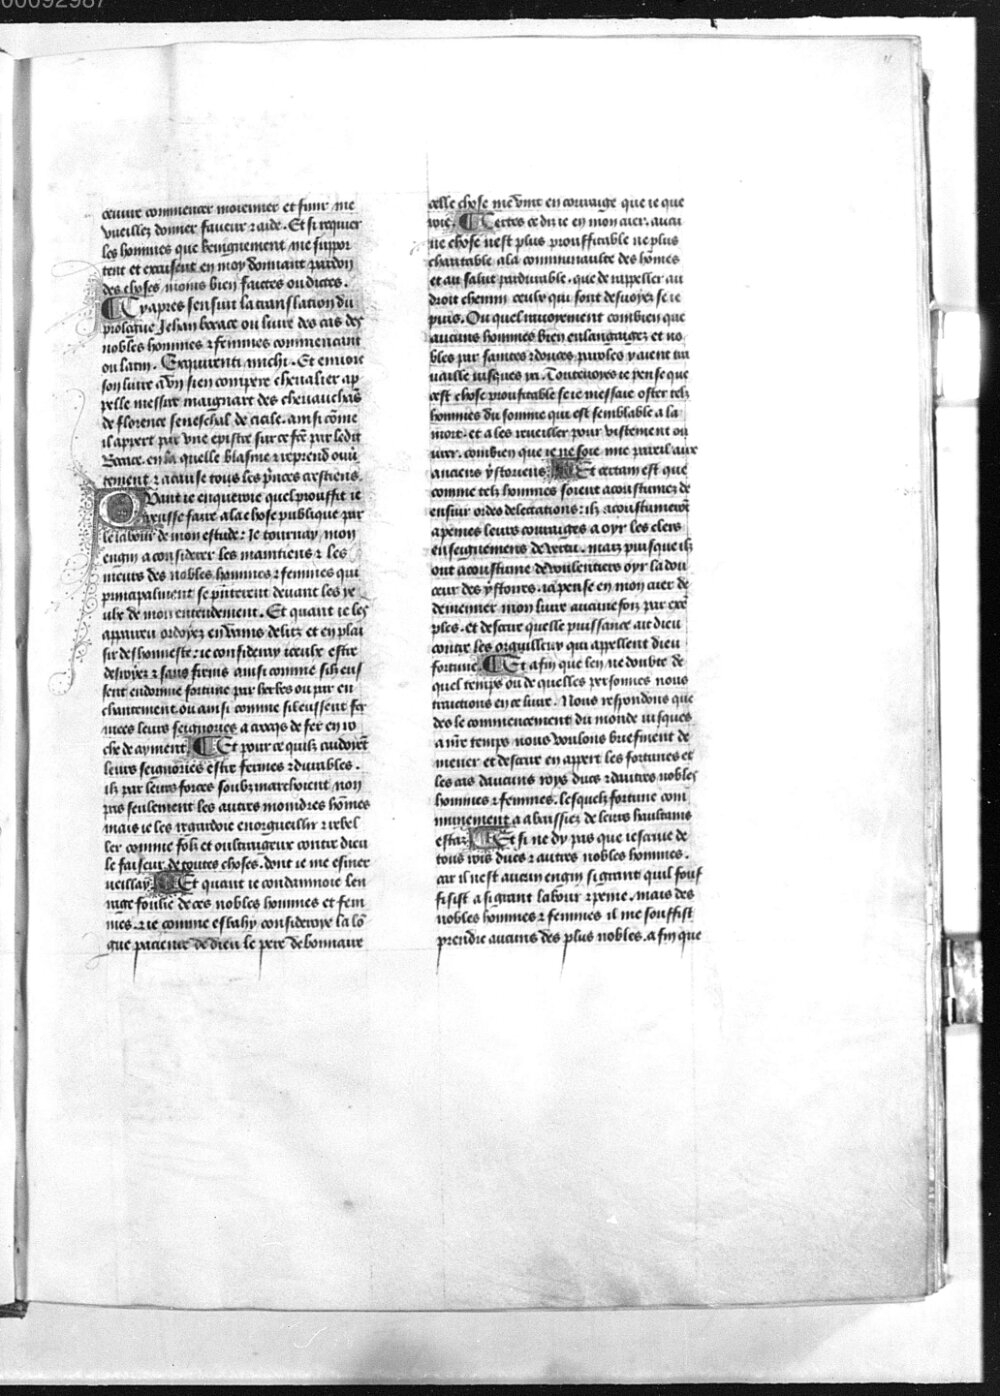 00092987
11
œuure commencer moienner et finir me
vueillez donner faueur ⁊ aide. Et si requier
les hommes que benignement me suppor
tent et excusent en moy donnant pardon
des choses moins bien faictes ou dictes.
Cy apres sensuit la translation du
prologue Jehan bocace ou liure des cas des
nobles hommes ⁊ femmes commencant
ou latin. Exquirenti michi. Et enuoie
son liure a vn sien compere cheualier ap
pelle messire maignart des cheuauchãs
de florence seneschal de cicile. ainsi cõme
il appert par vne epistre sur ce fcẽ par ledit
Bocace. en la quelle blasme ⁊ reprend ouũ
tement ⁊ accuse tous les p̃nces crestiens.
Quant ie enqueroie quel prouffit ie
peusse faire a la chose publique par
le labour de mon estude: Je tournay mon
engin a considerer les maintiens ⁊ les
meurs des nobles hommes ⁊ femmes qui
principalment se p̃nterent deuant les ye
ulx de mon entendement. Et quant ie les
apparceu ordoyez en vains delitz et en plai
sir deshonneste: ie consideray iceulx estre
desuoyez ⁊ sans frains ainsi comme silz eus
sent endormie fortune par herbes ou par en
chantement. ou ainsi comme sil eussent fer
mees leurs seignories a crocqs de fer en ro
che de ayment. Et pour ce quilz cuidoiẽt
leurs seignories estre fermes ⁊ durables.
ilz par leurs forces soubzmarchoient non
pas seulement les autres moindres hõmes
mais ie les regardoie enorgueillir ⁊ rebel
ler comme folz et oultraigeux contre dieu
le faiseur de toutes choses. dont ie me esmer
ueillay. Et quant ie condamnoie len
raige foulie de ces nobles hommes et fem
mes. ⁊ ie comme esbahy consideroye la lõ
gue pacience de dieu le pere debonnaire
celle chose me vint en couraige que ie que
roie. Certes ce dis ie en mon cuer. aucu
ne chose nest plus prouffitable ne plus
charitable a la communaulte des hõmes
et au salut pardurable. que de rappeller au
droit chemin ceulx qui sont desuoyez se ie
puis. Ou quel mouuement combien que
aucuns hommes bien enlangaigez et no
bles par sainctes ⁊ doulces paroles y aient tra
uaille iusques cy. Toutesuoies ie pense que
cest chose proufitable se ie messaie oster telz
hommes du somme qui est semblable a la
mort. et a les reueiller pour vistement ou
urer. combien que ie ne soie mie pareil aux
anciens ystoriens. Et certain est que
comme telz hommes soient acoustumez de
ensuir ordes delectations: ilz acoustumerõt
a peines leurs couraiges a oyr les clers
enseignemens de vertu. maiz puisque ilz
ont acoustume de voulentiers oyr la dou
ceur des ystoires. ia pense en mon cuer de
demener mon liure aucunefois par exẽ
ples. et descrire quelle puissance au dieu
contre les orguilleux qui appellent dieu
fortune. Et afin que len ne doubte de
quel temps ou de quelles personnes nous
traictions en ce liure. Nous respondons que
des le commencement du monde iusques
a nr̃e temps nous voulons briefment de
mener et descrire en appert les fortunes et
les cas daucuns roys ducs ⁊ dautres nobles
hommes ⁊ femmes. lesquelz fortune com
munement a abaissiez de leurs haultains
estaz. Et si ne dy pas que iescriue de
tous rois ducs ⁊ autres nobles hommes.
car il nest aucun engin si grant quil souf
fisist a si grant labour ⁊ peine. mais des
nobles hommes ⁊ femmes il me souffist
prendre aucuns des plus nobles. a fin que